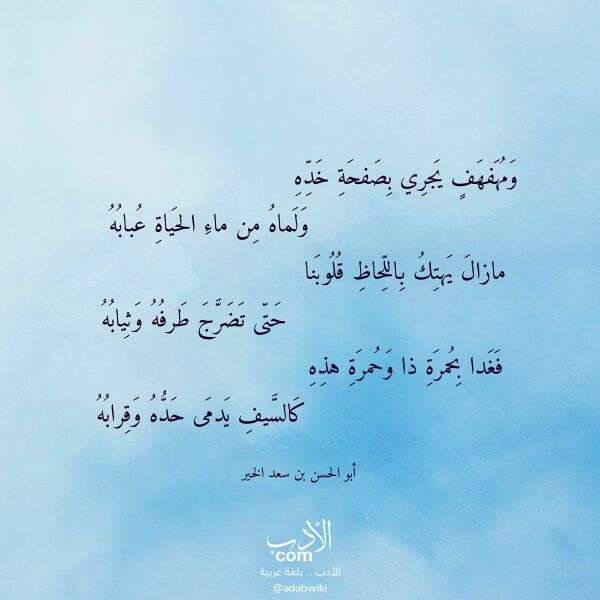 وَمُهَفهَفٍ يَجرِي بِصَفحَةِ خَدِّهِ
وَلَماهُ مِن ماءِ الحَياةِ عُبابُهُ
مازالَ يَهتِكُ بِاللِّحاظِ قُلُوبَنا
حَتّى تَضَرَّجَ طَرفُهُ وَثِيابُهُ
فَغَدا بِحُمرَةِ ذا وَحُمرَةِ هذِهِ
كَالسَّيفِ يَدمَى حَدُّهُ وَقِرابُهُ
أبو الحسن بن سعد الخير
الأدب
com
الأدب .. بلغة عربية
@adabwiki